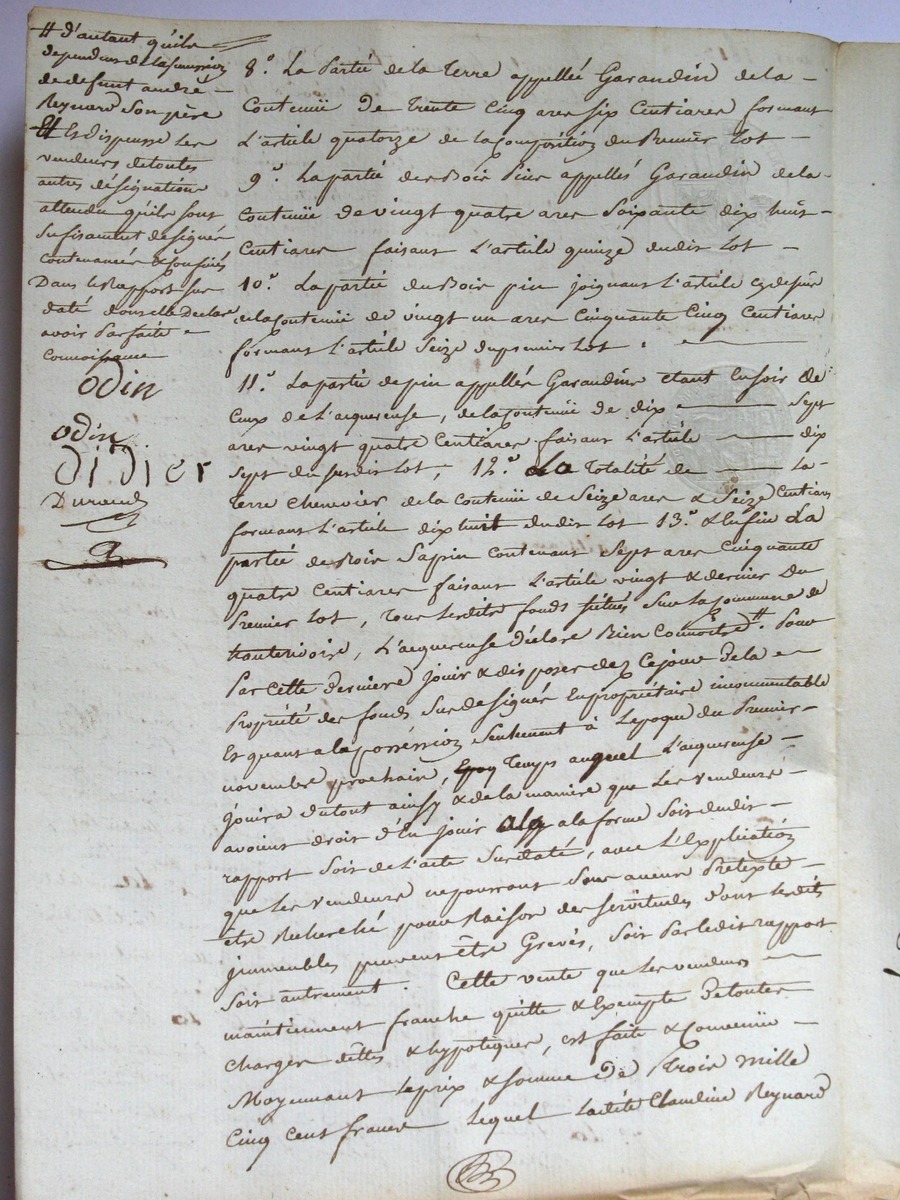 # d'autant qu'ils
dependent de la succession
de defunt andré
Reynard Son père
Et Dispense Les
vendeurs de toutes
autres désignations
attendu qu'ils sont
Sufisament designés
Contenancés & Confinés
Dans le Rapport sus
daté dont elle Declare
avoir parfaite
Connoissance
odin
odin
didier
Durand
8.° La Partie de la Terre appellée Garaudin de la
Contenüe de Trente Cinq ares six Centiares formant
L'article quatorze de la Composition du Premier Lot
9.° La partie de Bois Pins appellés Garaudin de la
Contenüe de vingt quatre ares Soixante dix huit
Centiares faisant L'article quinze dudit Lot
10.° La partie du Bois pin joignant l'article cy dessus
de la Contenüe de vingt un ares Cinquante Cinq Centiares
formant L'article Seize du premier Lot.
11.° La partie de pin appellée Garaudin étant En soir de
Ceux de L'acquereuse, de la Contenüe de dix Sept
ares vingt quatre Centiares faisant L'article dix
Sept du susdit Lot, 12.° La Totalité de La
Terre Chenevier de la Contenüe de Seize ares & Seize Centiares
formant L'article dix huit dudit Lot 13.° & Enfin La
partie de Bois Sapin Contenant Sept ares Cinquante
quatre Centiares faisant L'article vingt & dernier Du
Premier Lot, Tous Lesdits fonds situés Sur La Commune de
, L'acquereuse déclare Bien Connoitre #. Pour
Par Cette derniere Jouir & disposer dez Ce jour de la
Propriété des fonds Susdesignés En propriétaire incommutable
Et quant a la possession Seulement à L'epoque du Premier
novembre prochain, Temps auquel L'acquereuse
Jouira dutout ainssy & de la maniere que Les vendeurs
avoient droit d'En jouir a la forme Soit dudit
rapport Soit de L'acte Susdaté, avec L'Explication
que Les vendeurs ne pourront Sous aucun Pretexte
être Recherché pour Raison des servitudes dont Lesdits
immeubles peuvent être Grevés, Soit Par Ledit rapport
Soit autrement. Cette vente que Les vendeurs
maintiennent franche quitte & Exempte de toutes
charges dettes & hypoteques, est faite & Convenüe
Moyennant le prix & somme De Trois mille
Cinq Cent francs Lequel Ladite Claudine Reynard